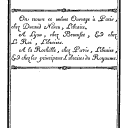 On trouve ce même Ouvrage à Paris,
chez Durand Neveu, Libraire.
A Lyon, chez Bruyset, Et chez
Le Roi, Libraires.
A la Rochelle, chez Pavie, Libraire
Et chez les principaux Libraires du Royaume.